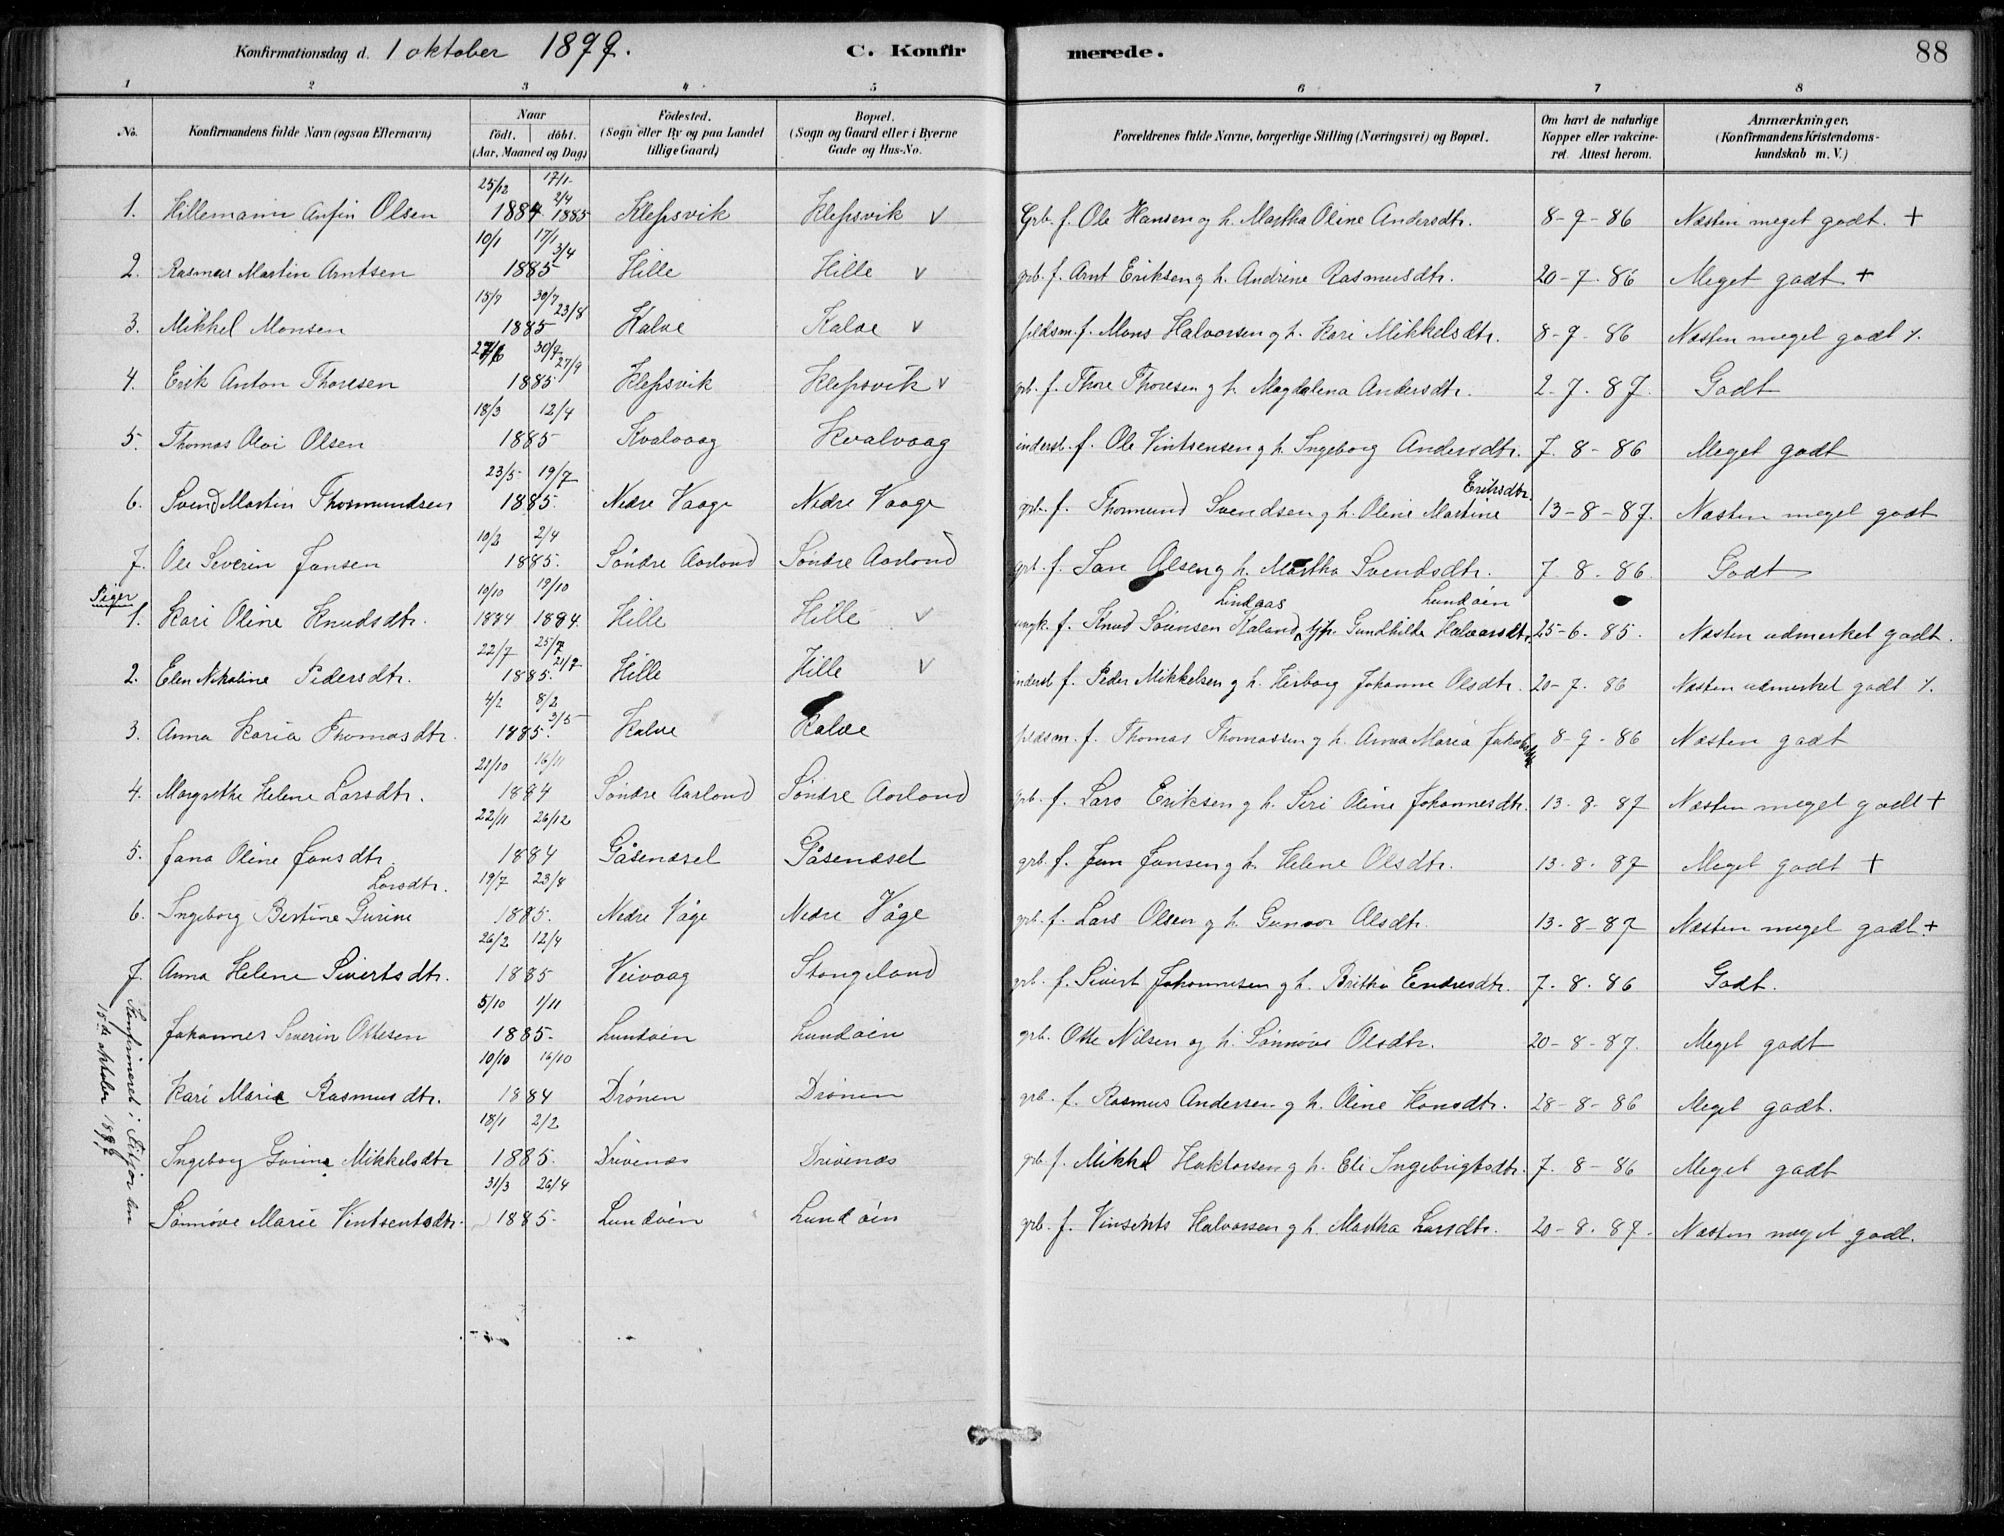 Konfirmationsdag d. 1 oktober 1899. C. Konfirmerede. 88
1 2 3 4 5 6 7 8
No. Konfirmandens fulde Navn (ogsaa Efternavn) Naar födt. döbt. (Aar, Maaned og Dag) Födested. (Sogn eller By og paa Landet tillige Gaard) Bopæl. (Sogn og Gaard eller i Byerne Gade og Hus-No. Forældrenes fulde Navne, borgerlige Stilling (Næringsvei) og Bopæl. Om havt de naturlige Kopper eller vakcineret. Attest herom. Anmærkninger. (Konfirmandens Kristendomskundskab m. V.)
25/12 17/1 2/4
1. Hillemann Anfin Olsen 1884 1885 Klepsvik Klepsvik v Grb. f. Ole Hansen og h. Martha Oline Andersdtr. 8-9-86 Næsten meget godt. +
10/1 17/1 3/4
2. Rasmus Martin Arntsen 1885 Hille Hille v grb. f. Arnt Eriksen og h. Andrine Rasmusdtr. 20-7-86 Meget godt +
15/7 30/7 23/8
3. Mikkel Monsen 1885 Kalve Kalve v pldsm. f. Mons Halvorsen og h. Kari Mikkelsdtr. 8-9-86 Næsten meget godt %.
27/6 30/7 27/9
4. Erik Anton Thoresen 1885 Klepsvik Klepsvik v grb. f. Thore Thoresen og h. Magdalena Andersdtr. 2-7-87. Godt
18/3 12/4
5. Thomas Olai Olsen 1885 Kvalvaag Kvalvaag inderst. f. Ole Vintsensen og h. Ingeborg Andersdtr. 7-8-86 Meget godt
23/5 19/7
6. Svend Martin Thormundsen 1885. Nedre Vaage Nedre Vaage grb. f. Thormund Svendsen og h. Oline Martine Eriksdtr. 13-8-87. Næsten meget godt
10/2 2/4
7. Ole Severin Jansen 1885. Söndre Aarland Söndre Aarland grb. f. Jan Olsen og h. Martha Svendsdtr. 7-8-86. Godt
Piger
10/10 19/10
1. Kari Oline Knudsdtr. 1884 1884. Hille Hille v ungk. f. Knud Sörensen Kaland Lindaas Gundhilde Halvorsdtr. Lundöen 25-6-85. Næsten udmerket godt.
22/7 25/7 21/9
2. Elen Nikoline Pedersdtr. 1885. Hille Hille v inderst f. Peder Mikkelsen og h. Herborg Johanne Olsdtr. 20-7-86 Næsten udmerket godt %.
4/2 8/2 3/5
3. Anna Karia Thomasdtr. 1885. Kalve Kalve pldsm. f. Thomas Thomassen og h. Anna Maria Jakobsdtr 8-9-86 Næsten godt
21/10 16/11
4. Margrethe Helene Larsdtr. 1884 Söndre Aarland Söndre Aarland grb. f. Lars Eriksen og h. Siri Oline Johannesdtr. 13-8-87 Næsten meget godt +
22/11 26/12
5. Jana Oline Jansdtr. 1884 Gåsenæsel Gåsenæsel grb. f. Jan Jansen og h. Helene Olsdtr. 13-8-87 Meget godt +
19/7 23/8
6. Ingeborg Bertine Gurine Larsdtr. 1885. Nedre Våge Nedre Våge grb. f. Lars Olsen og h. Gunvor Olsdtr. 13-8-87 Næsten meget godt. +
26/2 12/4
7. Anna Helene Sivertsdtr. 1885 Veivaag Stangeland grb. f. Sivert Johannesen og h. Britha Endresdtr. 7-8-86 Godt.
Konfirmeret i Fitjar den 15de oktober 1899
5/10 1/11
Johannes Severin Ottesen 1885. Lundöen Lundöen grb. Otte Nilsen og h. Sönnöve Olsdtr. 20-8-87. Meget godt
10/10 16/10
Kari Marie Rasmusdtr. 1884 Drönen Drönen grb. f. Rasmus Andersen og h. Oline Hansdtr. 28-8-86 Meget godt.
18/1 2/2
Ingeborg Gurine Mikkelsdtr 1885. Drivenæs Drivenæs grb. f. Mikkel Haktorsen og h. Eli Ingebrigtsdtr. 7-8-86 Meget godt
31/3 26/4
Sönnöve Marie Vintsentsdtr. 1885. Lundöen Lundöen grb. f. Vinsents Halvorsen og h. Martha Larsdtr. 20-8-87. Næsten meget godt.